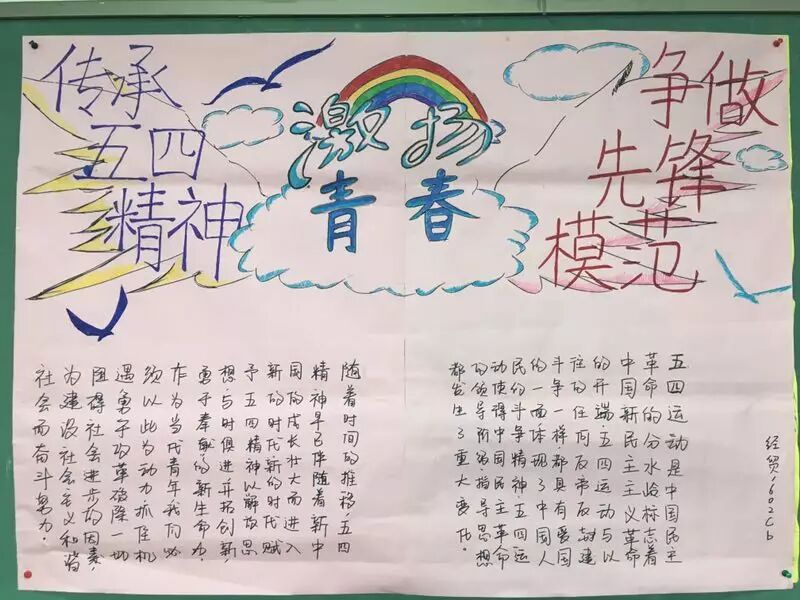 传承
五四
精神
激扬
青春
争做
先锋
模范
五四运动是中国民主
革命的分水岭标志着
中国新民主主义革命
的开端五四运动与以
往的任何反帝反封建
斗争一样都具有爱国
的一面体现了中国人
民的斗争精神五四运
动使得中国民主革命
的领导阶级指导思想
都发生了重大变化.
随着时间的推移,五四
精神早已伴随着新中
国的成长壮大而进入
新的时代新的时代赋
予五四精神以解放思
想与时俱进开拓创新,
勇于奉献的新生命力.
作为当代青年我们必
须以此为动力抓住机
遇勇于改革破除一切
阻碍社会进步的因素,
为建设社会主义和谐
社会而奋斗努力.
经贸1602Cb